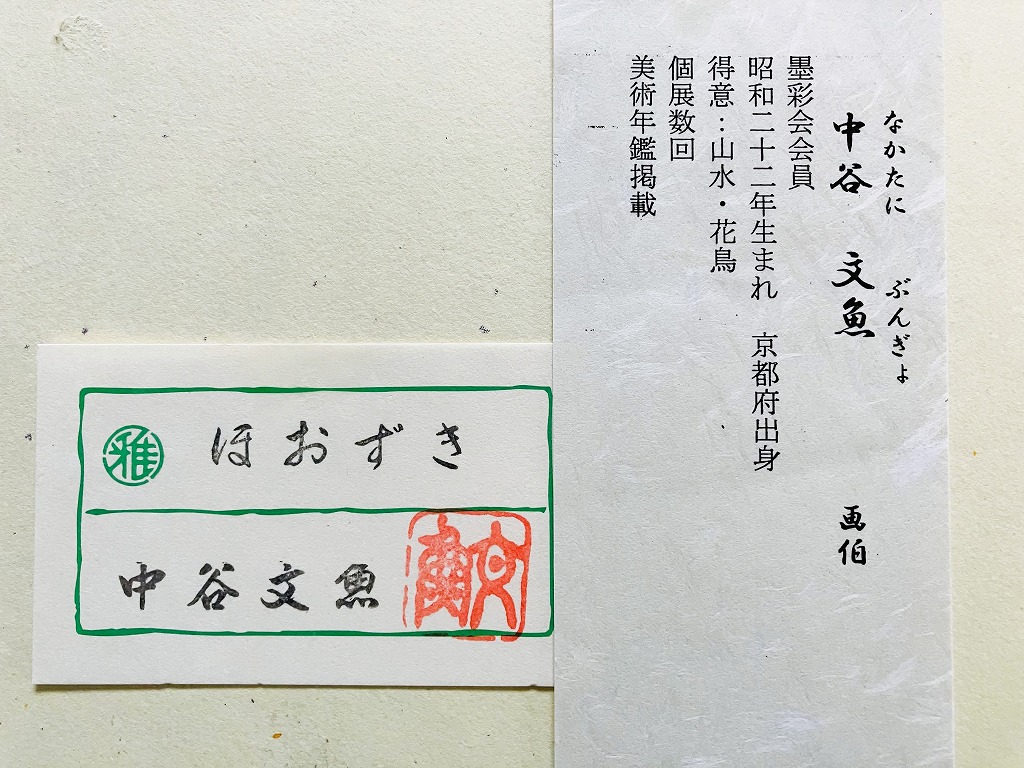 なかたに　ぶんぎょ
中谷　文魚　画伯
墨彩会会員
昭和二十二年生まれ　京都府出身
得意：山水・花鳥
個展数回
美術年鑑掲載
雅 ほおずき
中谷文魚
文魚